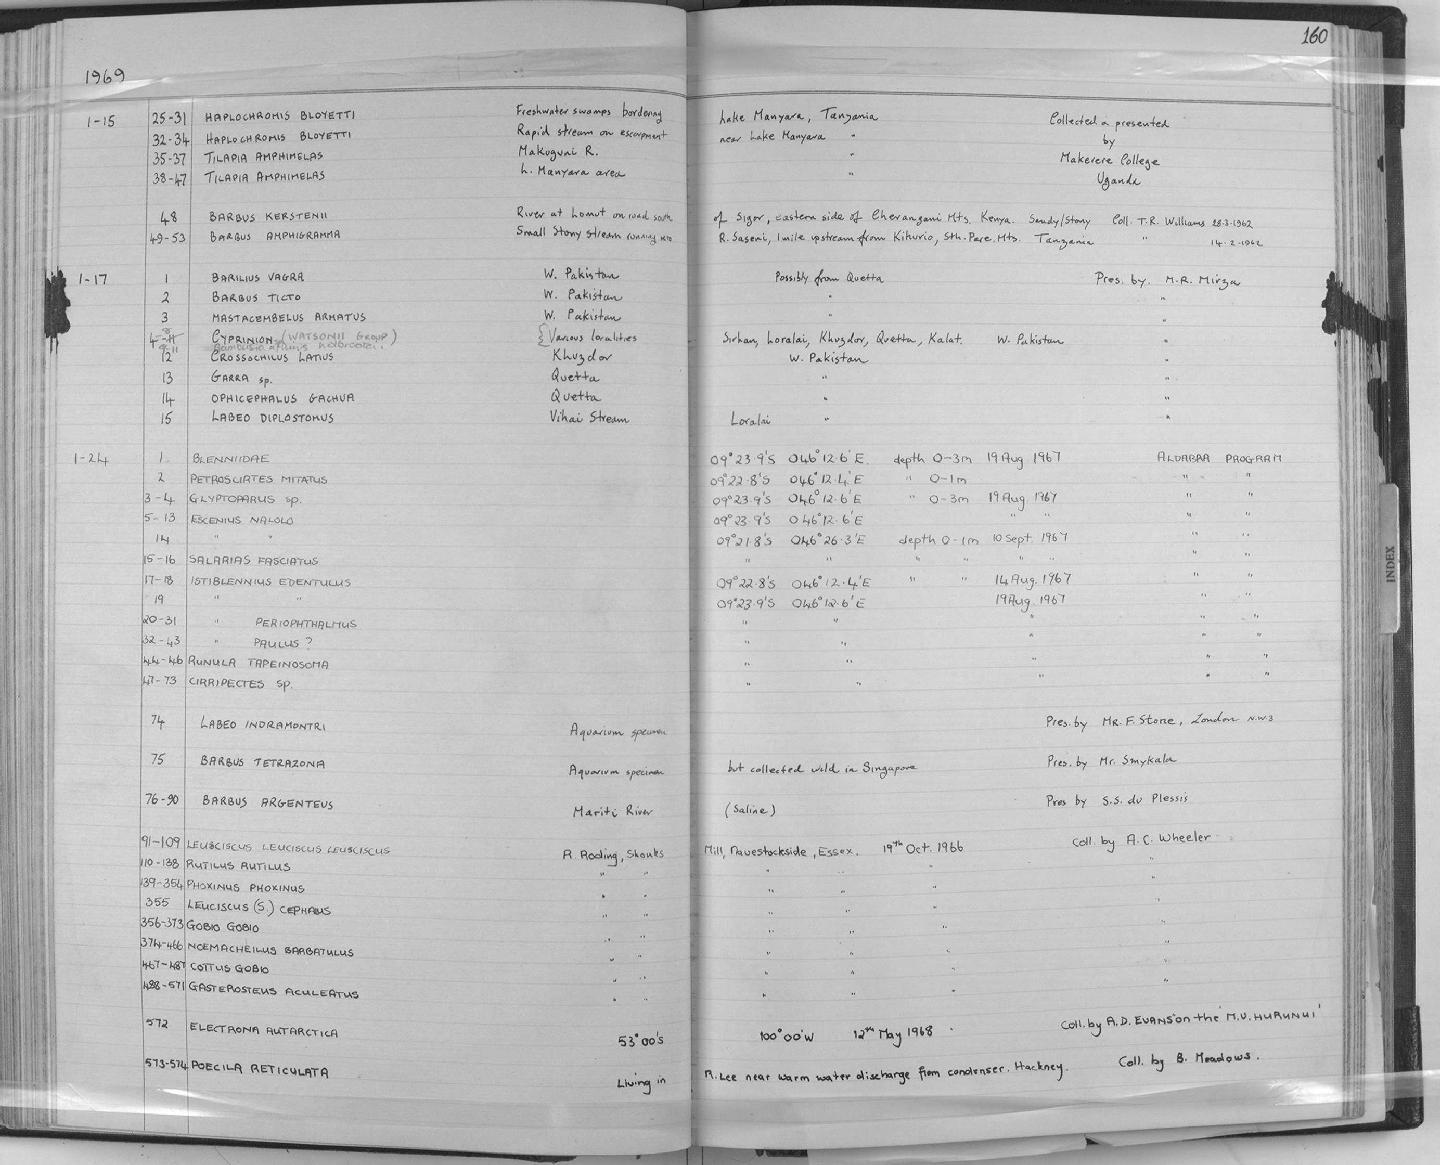 160
1969
1-15 25-31 HAPLOCHROMIS BLOYETTI Freshwater swamps bordering Lake Manyara, Tanzania Collected & presented
32-34 HAPLOCHROMIS BLOYETTI Rapid stream on escarpment near Lake Manyara " by
35-37 TILAPIA AMPHIMELAS Makuguni R. " Makerere College
38-47 TILAPIA AMPHIMELAS L. Manyara area " Uganda
48 BARBUS KERSTENII River at Lomut on road south of Sigor, eastern side of Cherangani Mts. Kenya. Sandy/Stony Coll. T.R. Williams 28.3.1962
49-53 BARBUS AMPHIGRAMMA Small Stony stream running into R. Saseni, 1 mile upstream from Kihurio, Sth. Pare. Mts. Tanzania " 14.2.1962
1-17 1 BARILIUS VAGRA W. Pakistan Possibly from Quetta Pres. by. M.R. Mirza
2 BARBUS TICTO W. Pakistan " "
3 MASTACEMBELUS ARMATUS W. Pakistan " "
4-11 CYPRINION (WATSONII GROUP) { Various localities Sirhan, Loralai, Khuzdor, Quetta, Kalat. W. Pakistan "
Gambusia affinis holbrooki
12 CROSSOCHILUS LATIUS Khuzdor W. Pakistan "
13 GARRA sp. Quetta " "
14 OPHICEPHALUS GACHUA Quetta " "
15 LABEO DIPLOSTOMUS Vihai Stream Loralai " "
1-24 1. BLENNIIDAE 09°23.9'S 046°12.6'E. depth 0-3m 19 Aug 1967 ALDABRA PROGRAM
2 PETROSCIRTES MITATUS 09°22.8'S 046°12.4'E " 0-1m " "
3-4 GLYPTOPARUS sp. 09°23.9'S 046°12.6'E " 0-3m 19 Aug. 1967 " "
5-13 ESCENIUS NALOLO 09°23.9'S 046°12.6'E " " " "
14 " " 09°21.8'S 046°26.3'E depth 0-1m 10 Sept. 1967 " "
15-16 SALARIAS FASCIATUS " " " " " " " "
17-18 ISTIBLENNIUS EDENTULUS 09°22.8'S 046°12.4'E " " 14 Aug. 1967 " "
19 " " 09°23.9'S 046°12.6'E 19 Aug. 1967 " "
20-31 " PERIOPHTHALMUS " " " " "
32-43 " PAULUS? " " " " "
44-46 RUNULA TAPEINOSOMA " " " " "
47-73 CIRRIPECTES sp. " " " " "
74 LABEO INDRAMONTRI Aquarium specimen Pres. by MR. F. Stone, London N.W.3
75 BARBUS TETRAZONA Aquarium specimen but collected wild in Singapore Pres. by Mr. Smykala
76-90 BARBUS ARGENTEUS Mariti River (Saline) Pres by S.S. du Plessis
91-109 LEUSCISCUS LEUCISCUS LEUSCISCUS R. Roding, Shonks Mill, Navestockside, Essex. 19th Oct. 1966 Coll. by A.C. Wheeler
110-138 RUTILUS RUTILUS " " " " "
139-354 PHOXINUS PHOXINUS " " " " " "
355 LEUCISCUS (S.) CEPHALUS " " " " " "
356-373 GOBIO GOBIO " " " " "
374-466 NOEMACHEILUS BARBATULUS " " " " " "
467-487 COTTUS GOBIO " " " " "
488-571 GASTEROSTEUS ACULEATUS " " " " " "
572 ELECTRONA ANTARCTICA 53°00'S 100°00'W 12th May 1968 Coll. by A.D. EVANS on the 'M.V. HURUNUI'
573-574 POECILA RETICULATA Living in R. Lee near warm water discharge from condenser. Hackney. Coll. by B. Meadows.
INDEX